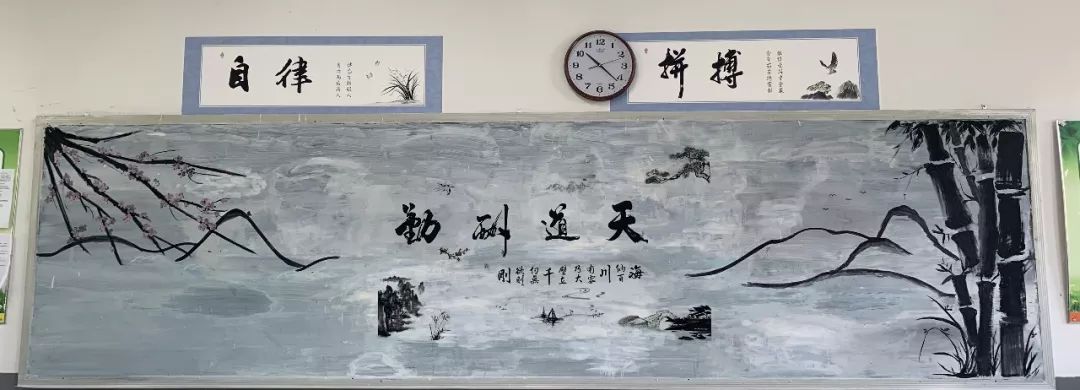 自律
拼搏
天道酬勤
海纳百川有容乃大壁立千仞無欲则刚